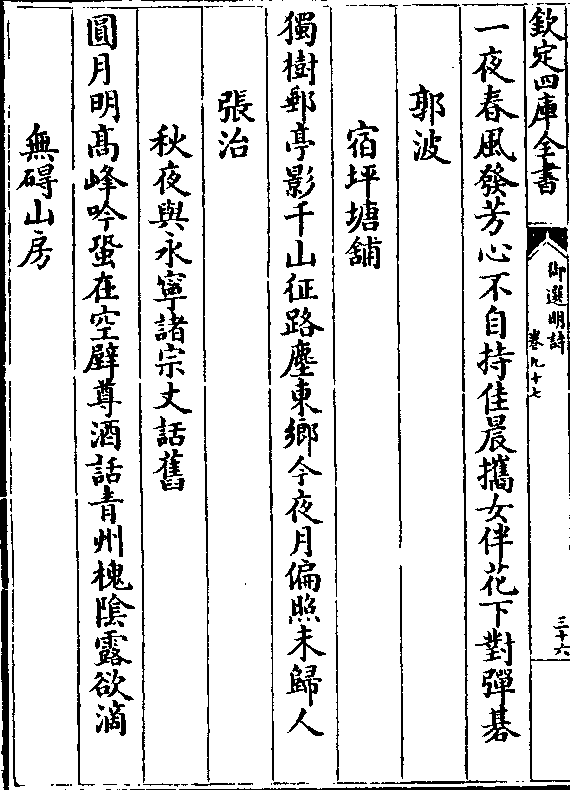 欽定四庫全書
御選明詩
卷九十七
三十六
一夜春風發芳心不自持佳晨攜女伴花下對彈碁
郭波
宿坪塘舖
獨樹郵亭影千山征路塵東鄉今夜月偏照未歸人
張治
秋夜與永寧諸宗丈話舊
圓月明高峰吟蛩在空壁尊酒話青州槐陰露欲滴
無碍山房